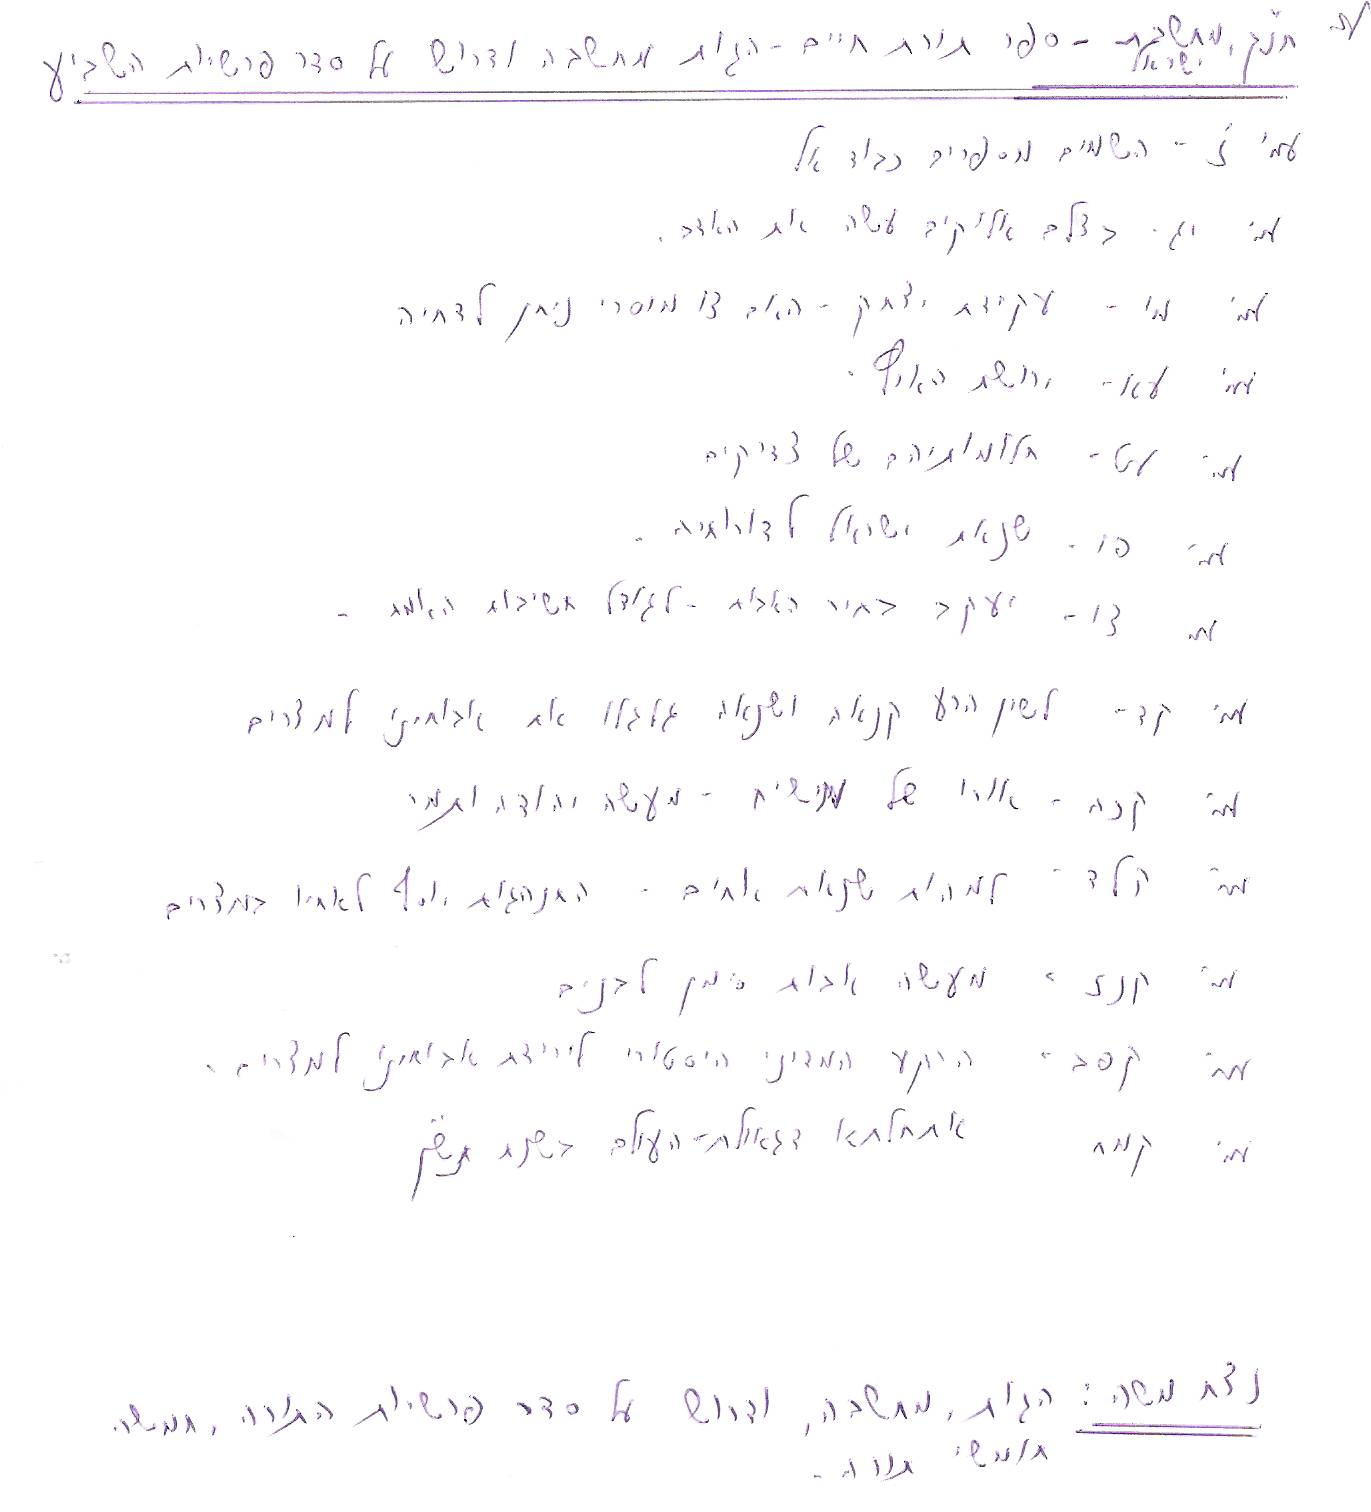 תנ"ך, מחשבת ישראל - ספר תורת חיים - הגות מחשבה ודרוש על סדר פרשיות השביע
עמ' ז' - השמים מספרים כבוד אל
עמ' יג - בצלם אלוקים עשה את האדם.
עמ' מו - עקידת יצחק - האם צו מוסרי ניתן לדחיה
עמ' עא - ירושת הארץ -
עמ' עט - חלומותיהם של צדיקים
עמ' פו - שנאת ישראל לדורותיה -
עמ' צו - יעקב בחיר האבות - לגודל חשיבות האמת -
עמ' קד - לשון הרע קנאה ושנאה גלגלו את אבותינו למצרים
עמ' קכה - אורו של משיח - מעשה יהודה ותמר
עמ' קלד - למהות שנאת אחים - התנהגות יוסף לאחיו במצרים
עמ' קנז - מעשה אבות סימן לבנים
עמ' קסב - הרקע המדיני היסטורי לירידת אבותינו למצרים -
עמ' קמח אתחלתא דגאולת - העולם בשנת תש"ן
נצח משה: הגות, מחשבה, ודרוש על סדר פרשיות התורה, חמשה
חומשי תורה -